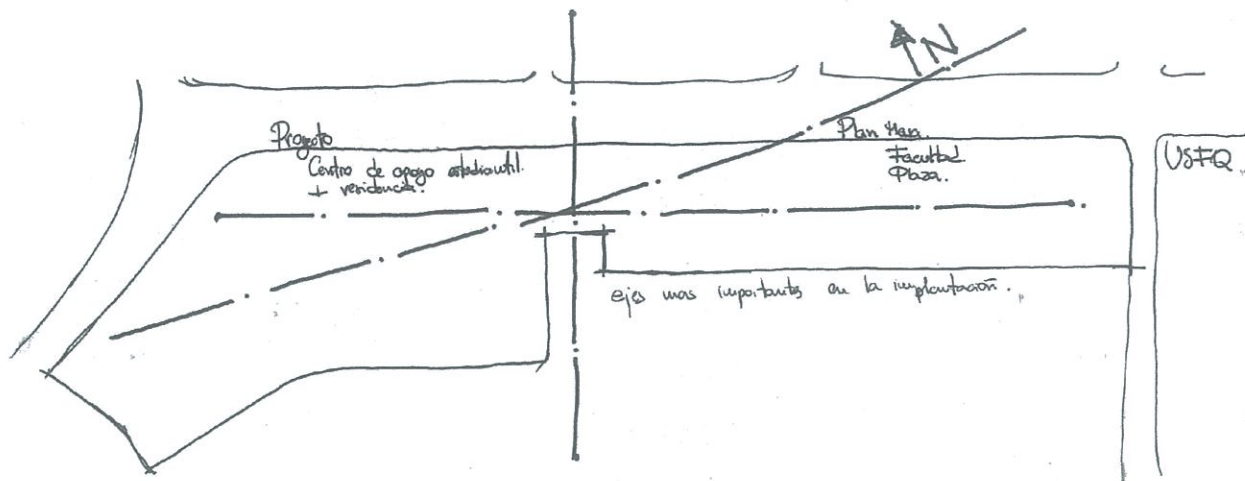 N
Proyecto
Centro de apoyo estudiantil.
+ residencia.
Plan Masa.
Facultad
Plaza.
USFQ
ejes mas importantes en la implantación.